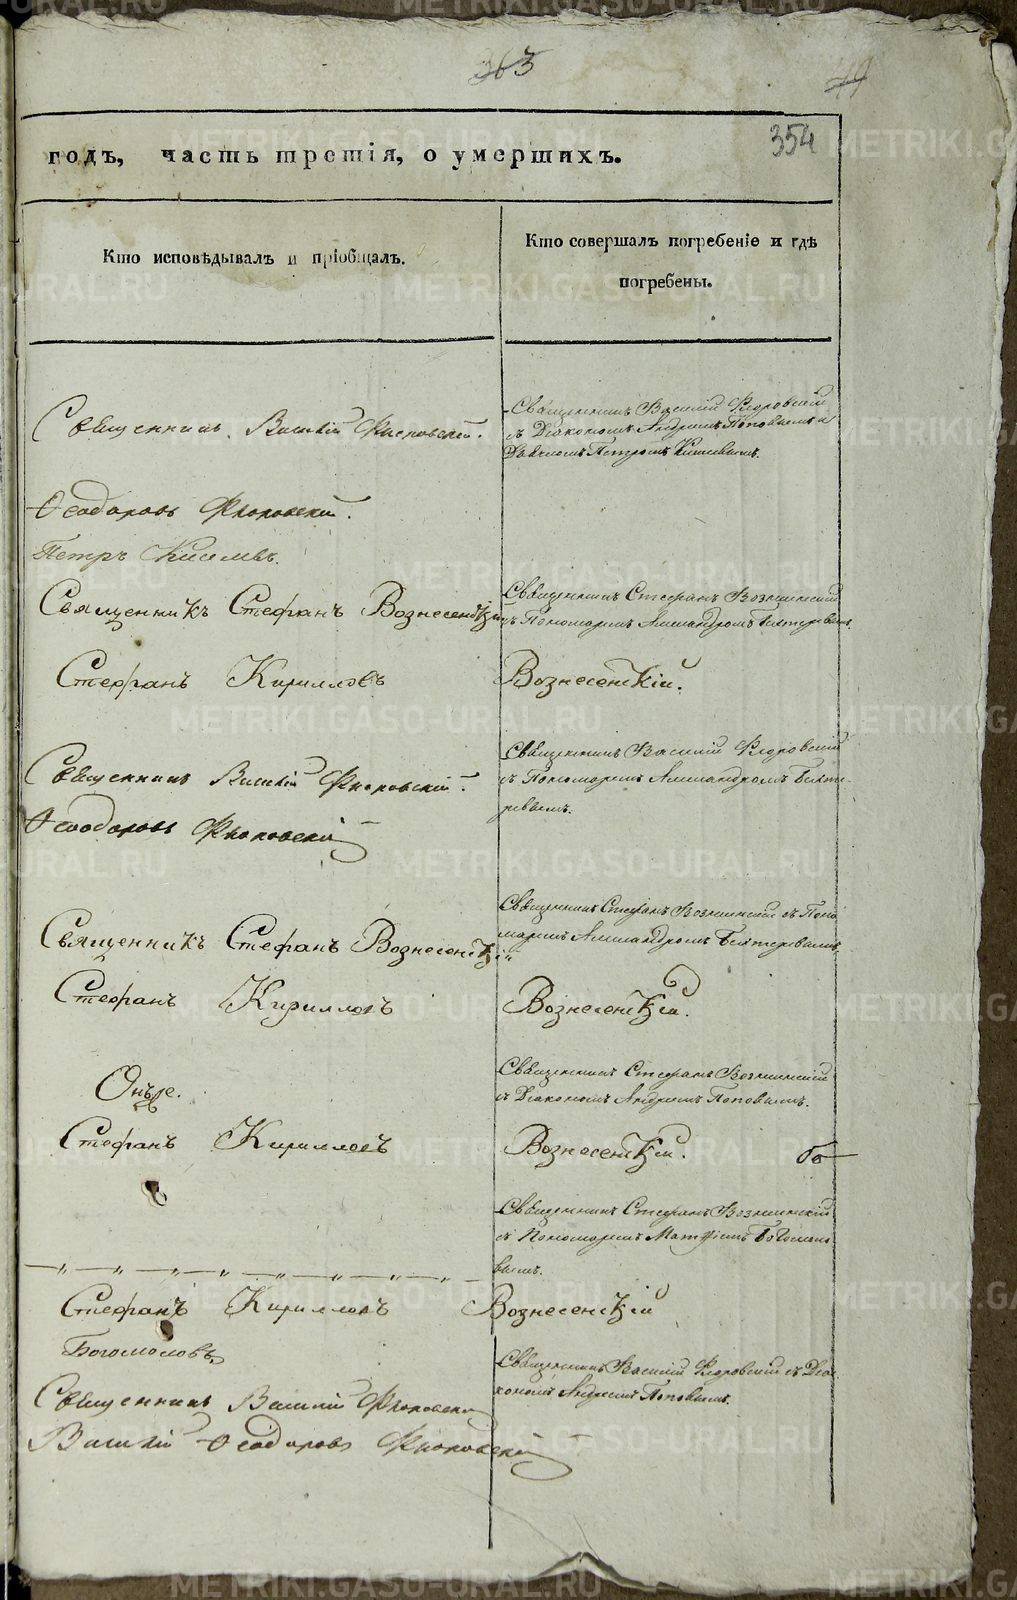 363
49
354
годъ, часть третія, о умершихъ.
Кто исповѣдывалъ и пріобщалъ.
Кто совершалъ погребеніе и гдѣ
погребены.
Священникъ Василій Флоровскій.
Священникъ Василій Флоровскій
съ Діакономъ Андреемъ Поповымъ и
Дьячкомъ Петромъ Киселевымъ.
Ѳеодоровъ Флоровскій.
Петръ Киселевъ.
Священникъ Стефанъ Вознесенскій
Священникъ Стефанъ Вознесенскій
съ Пономаремъ Александромъ
Стефанъ Кирилловъ Вознесенскій.
Священникъ Василій Флоровскій.
Священникъ Василій Флоровскій
съ Пономаремъ Александромъ
Ѳеодоровъ Флоровскій
Священникъ Стефанъ Вознесенскій
Священникъ Стефанъ Вознесенскій съ Поно
маремъ Александромъ
Стефанъ Кирилловъ Вознесенскій.
Онъ же.
Священникъ Стефанъ Вознесенскій
съ Діакономъ Андреемъ Поповымъ.
Стефанъ Кирилловъ Вознесенскій.
Священникъ Стефанъ Вознесенскій
съ Пономаремъ Матѳіемъ Богомоло
вымъ.
Стефанъ Кирилловъ Вознесенскій
Богомоловъ
Священникъ Василій Флоровскій съ Діа
кономъ Андреемъ Поповымъ.
Священникъ Василій Флоровскій
Василій Ѳеодоровъ Флоровскій
METRIKI.GASO-URAL.RU